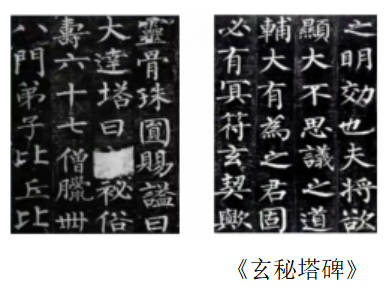 之明効也夫將欲
顯大不思議之道
輔大有為之君固
必有冥符玄契歟
靈骨珠圓賜諡曰
大達塔曰祕俗
壽六十七僧臘卌
八門弟子比丘比
《玄秘塔碑》